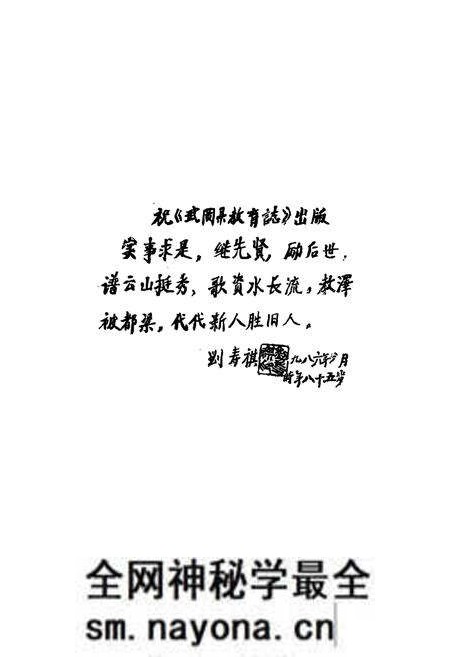 祝《武冈县教育誌》出版
实事求是，继先贤，励后世，
谱云山挺秀，歌资水长流，教泽
被都梁，代代新人胜旧人。
刘寿祺 一九八六年六月
时年八十五岁
全网神秘学最全
sm.nayona.cn